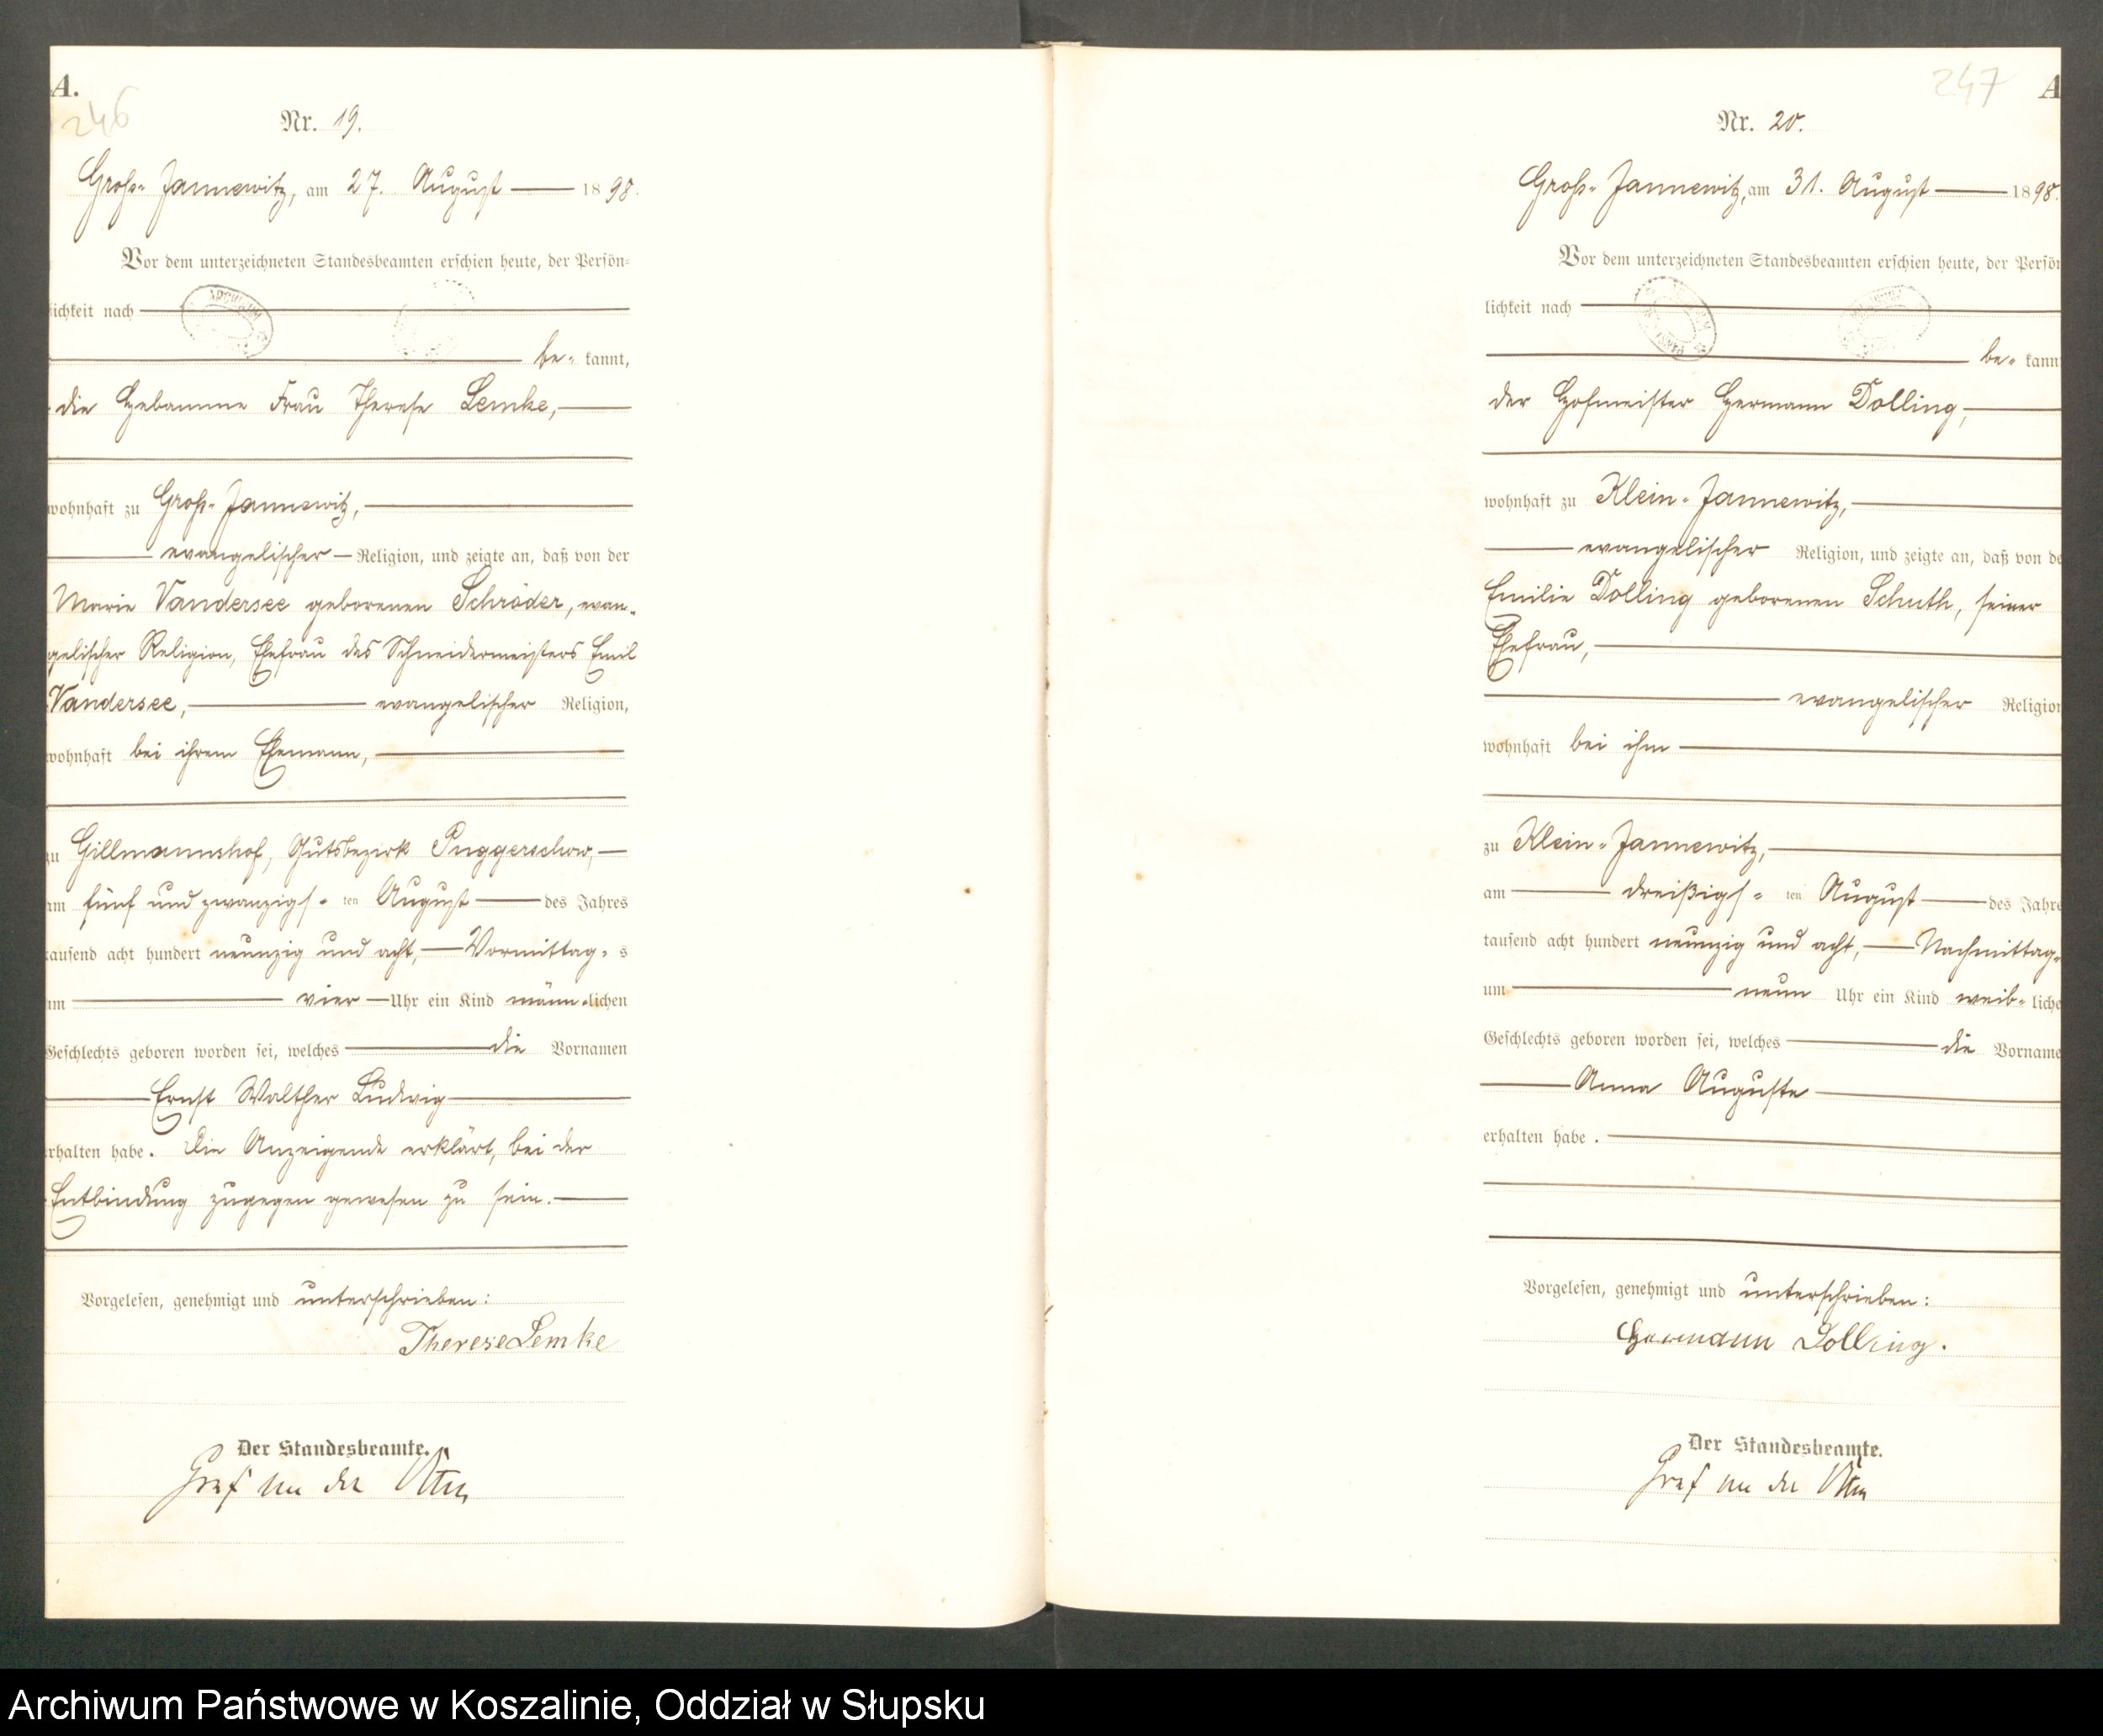 A.
246
Nr. 19.
Groß-Jannewitz, am 27. August 1898.
Vor dem unterzeichneten Standesbeamten erschien heute, der Persön-
lichkeit nach
be- kannt,
die Hebamme Frau Therese Lemke,
wohnhaft zu Groß-Jannewitz,
evangelischer Religion, und zeigte an, daß von der
Marie Vandersee geborenen Schröder, evan-
gelischer Religion, Ehefrau des Schneidermeisters Emil
Vandersee, evangelischer Religion,
wohnhaft bei ihrem Ehemann,
zu Gillmannshof, Gutsbezirk Puggerschow,
am fünf und zwanzigs- ten August des Jahres
tausend acht hundert neunzig und acht, Vormittag- s
um vier Uhr ein Kind männ-lichen
Geschlechts geboren worden sei, welches die Vornamen
Ernst Walther Ludwig
erhalten habe. Die Anzeigende erklärt, bei der
Entbindung zugegen gewesen zu sein.
Vorgelesen, genehmigt und unterschrieben:
Therese Lemke
Der Standesbeamte.
Graf von der
247
A
Nr. 20.
Groß-Jannewitz, am 31. August 1898.
Vor dem unterzeichneten Standesbeamten erschien heute, der Persön
lichkeit nach
be- kann
der Hofmeister Hermann Dolling,
wohnhaft zu Klein-Jannewitz,
evangelischer Religion, und zeigte an, daß von de
Emilie Dolling geborenen Schuth, seiner
Ehefrau,
evangelischer Religion
wohnhaft bei ihm
zu Klein-Jannewitz,
am dreißigs- ten August des Jahre
tausend acht hundert neunzig und acht, Nachmittag-
um neun Uhr ein Kind weib- liche
Geschlechts geboren worden sei, welches die Vorname
Anna Auguste
erhalten habe.
Vorgelesen, genehmigt und unterschrieben:
Hermann Dolling.
Der Standesbeamte.
Graf von der
Archiwum Państwowe w Koszalinie, Oddział w Słupsku